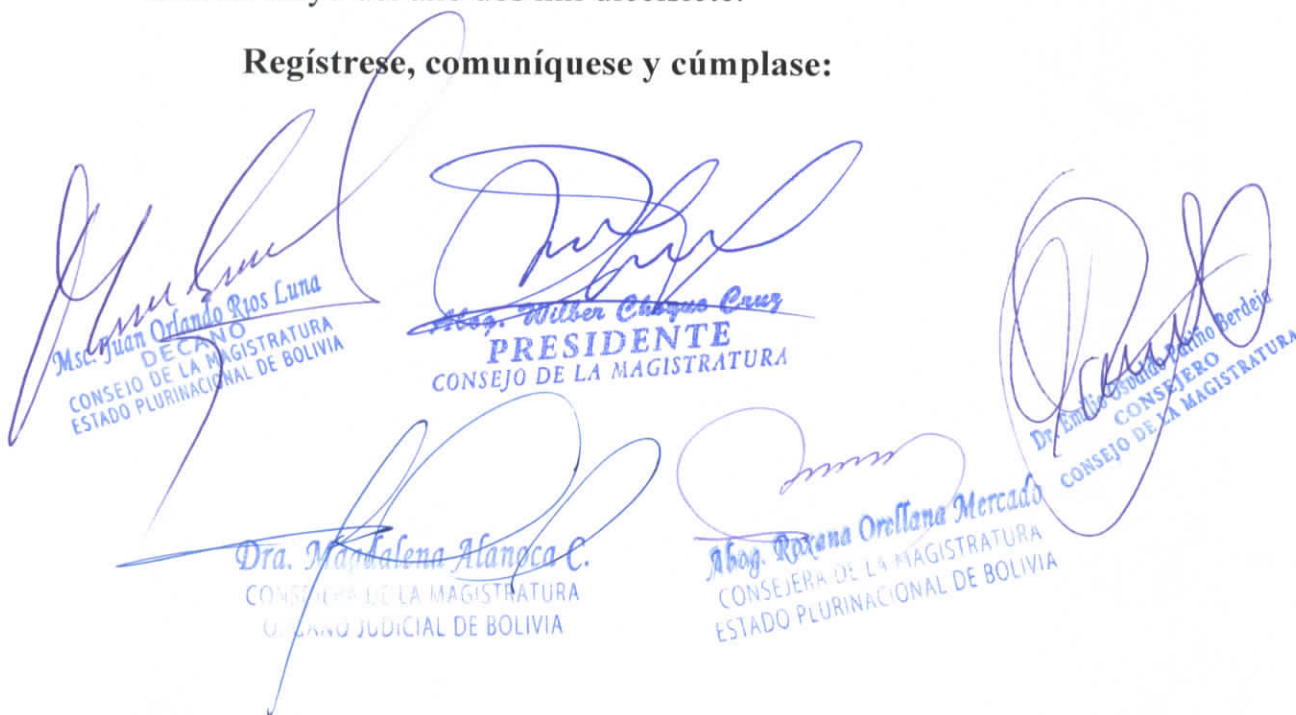 Regístrese, comuníquese y cúmplase:
Msc. Juan Orlando Rios Luna
DECANO
CONSEJO DE LA MAGISTRATURA
ESTADO PLURINACIONAL DE BOLIVIA
Abog. Wilber Choque Cruz
PRESIDENTE
CONSEJO DE LA MAGISTRATURA
Dr. Emilio Osvaldo Patiño Berdeja
CONSEJERO
CONSEJO DE LA MAGISTRATURA
Dra. Magdalena Alanoca C.
CONSEJERA DE LA MAGISTRATURA
ÓRGANO JUDICIAL DE BOLIVIA
Abog. Roxana Orellana Mercado
CONSEJERA DE LA MAGISTRATURA
ESTADO PLURINACIONAL DE BOLIVIA